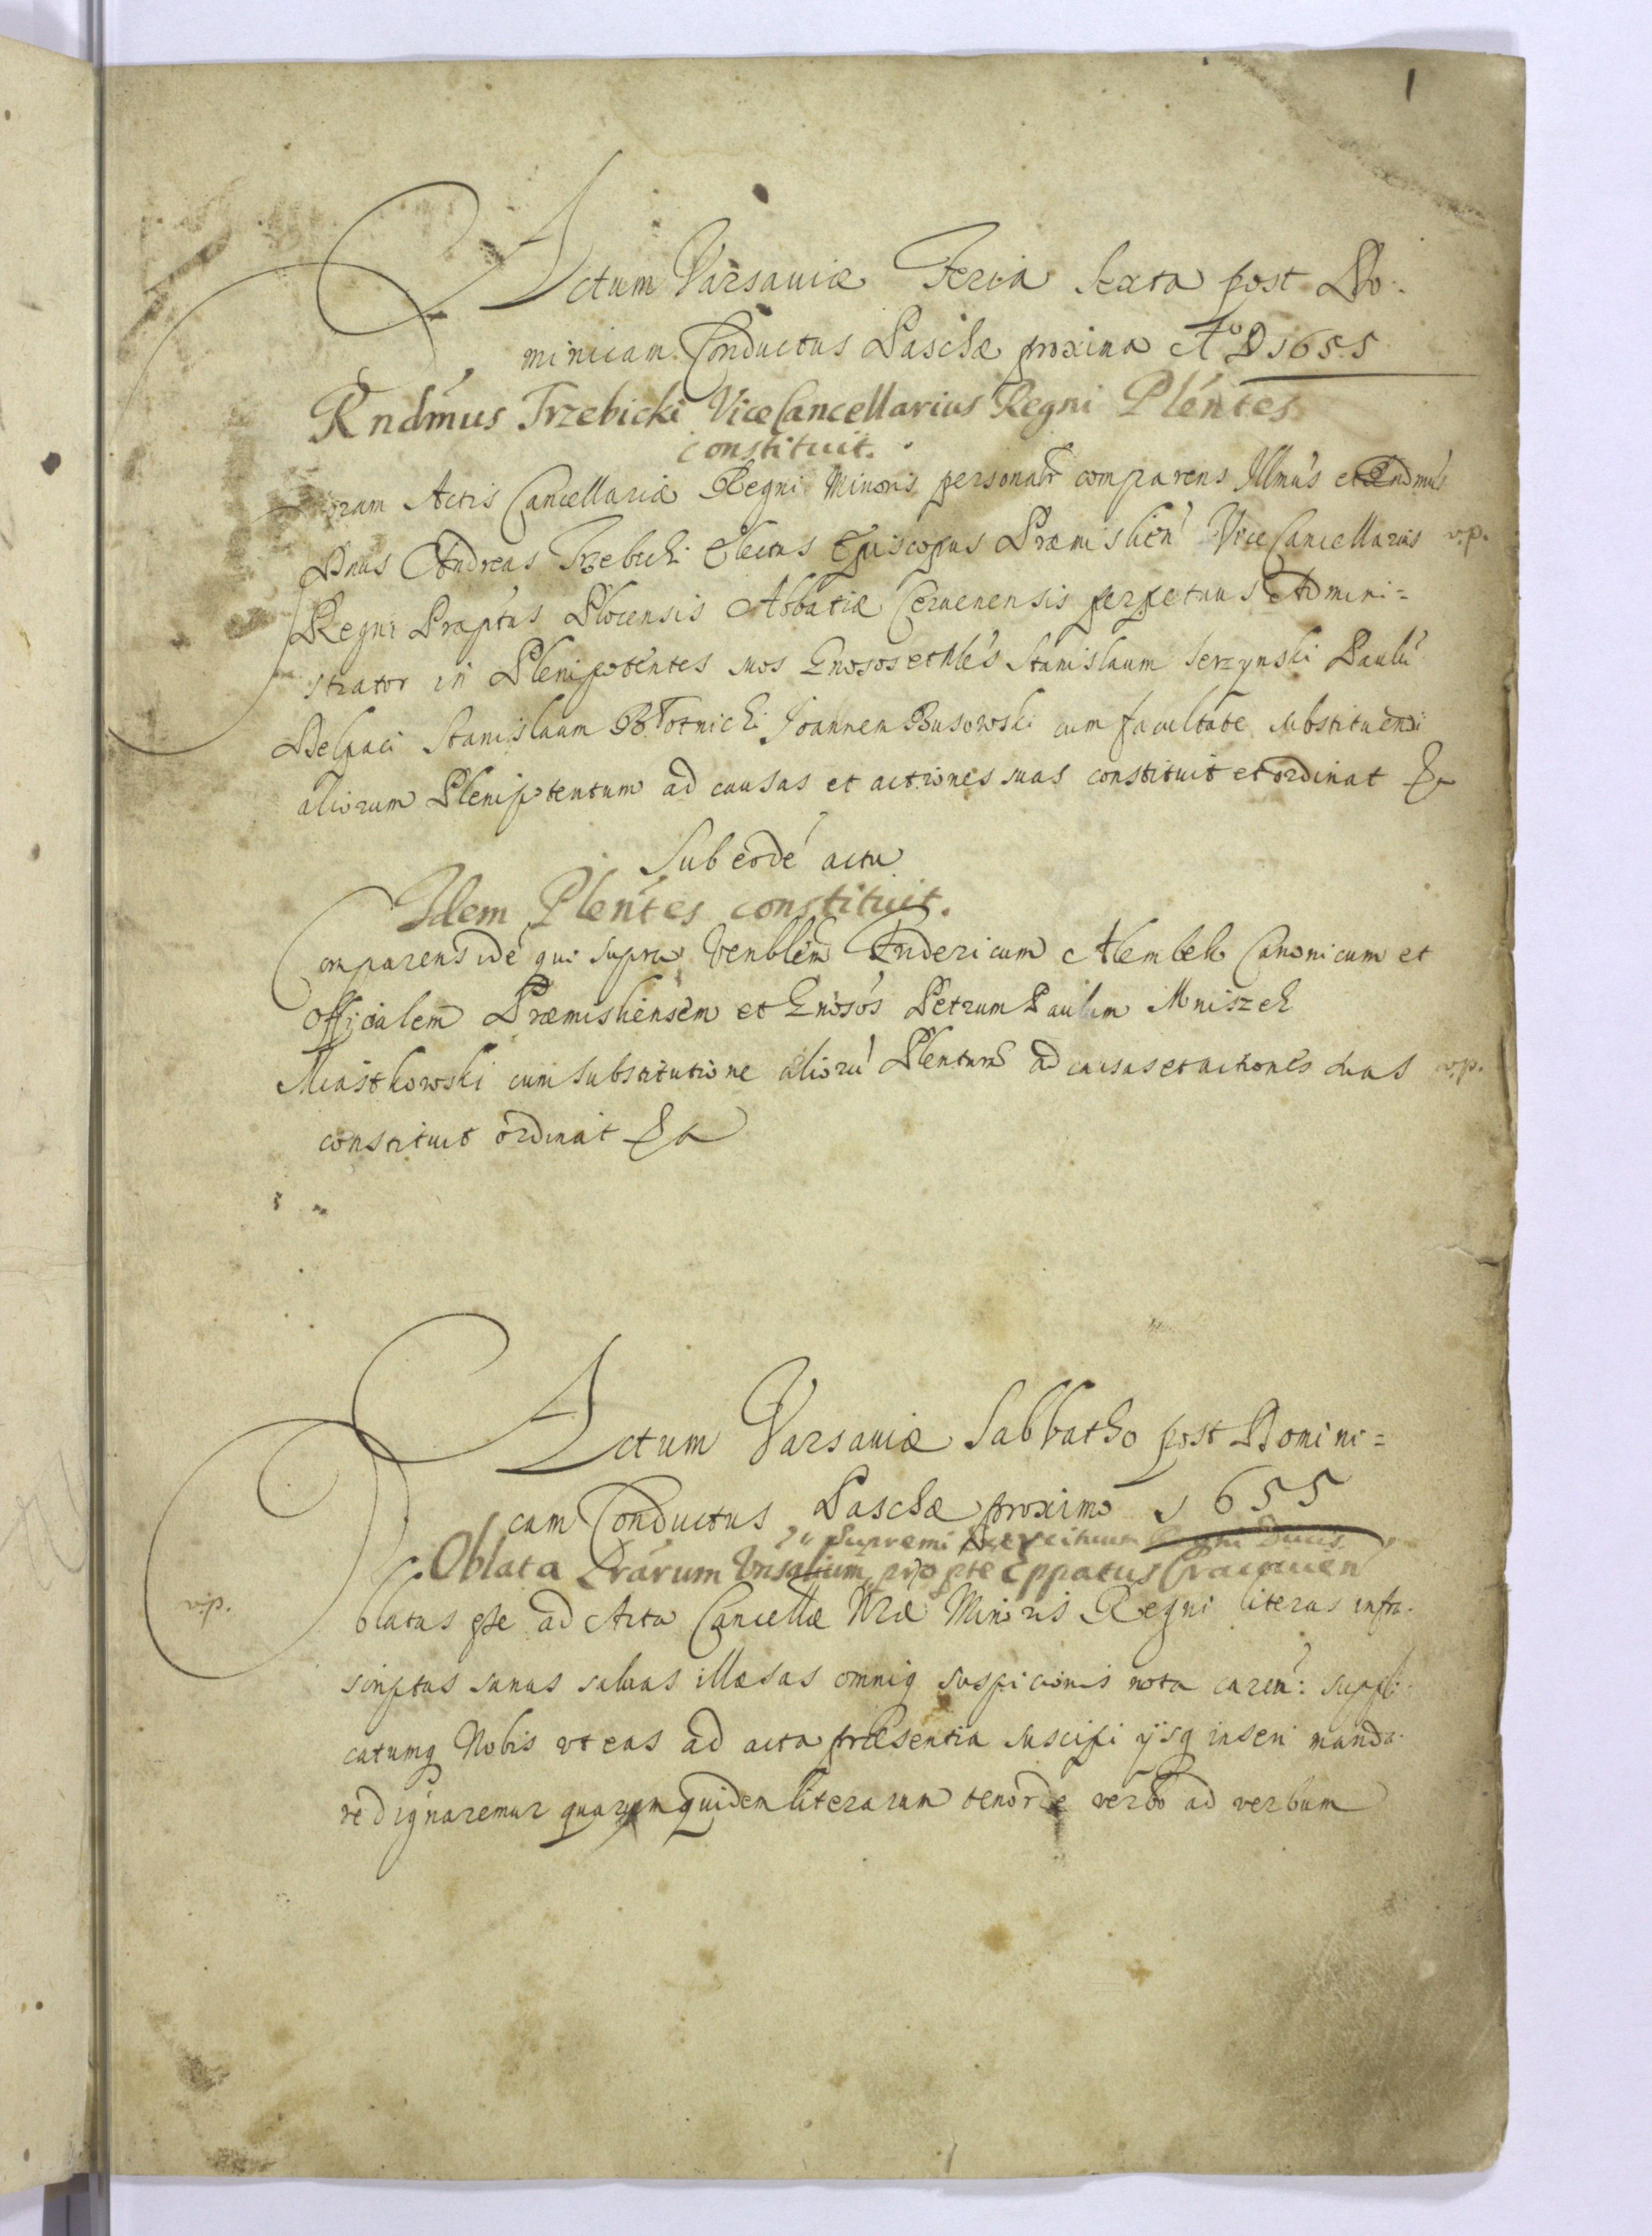 1
Actum Varsaviæ Feria sexta post Do-
minicam Conductus Paschæ proxima Aº D 1655
Rndmus Trzebicki ViceCancellarius Regni Plentes
constituit.
Coram Actis Cancellariæ Regni Minoris personalr comparens Illmus et Rndmus
Dnus Andreas Trzebicki Electus Episcopus Præmislien Vice Cancellarius v.p.
Regni Præptus Plocensis Abbatiæ Cervenensis perpetuus Admini=
strator in Plenipotentes suos Gnosos et Nles Stanislaum Serzynski Paulu
Delpaci Stanislaum Błotnicki Joannem Busowski cum facultate substituendi
aliorum Plenipotentum ad causas et actiones suas constituit et ordinat &a
Sub eode actu
Idem Plentes constituit.
Comparens ide qui supra Venblem Fridericum Alembek Canonicum et
Officialem Præmisliensem et Gnosos Petrum Paulum Mniszek
Miastkowski cum substitutione alioru Plentum ad causas et actiones suas v.p.
constituit ordinat &a
Actum Varsaviæ Sabbatho post Domini=
cam Conductus Paschæ proximo 1655
Supremi Exercituum Regni Ducis
Oblata Lrarum pte Eppatus Cracovien
v.p.
Oblatas esse ad Acta Cancellæ Nræ Minoris Regni literas infra-
scriptas sanas salvas illæsas omniq suspicionis nota caren: suppli-
catumq Nobis vt eas ad acta præsentia suscipi ijsq inseri manda-
re dignaremur quarum quidem literarum tenor de verbo ad verbum